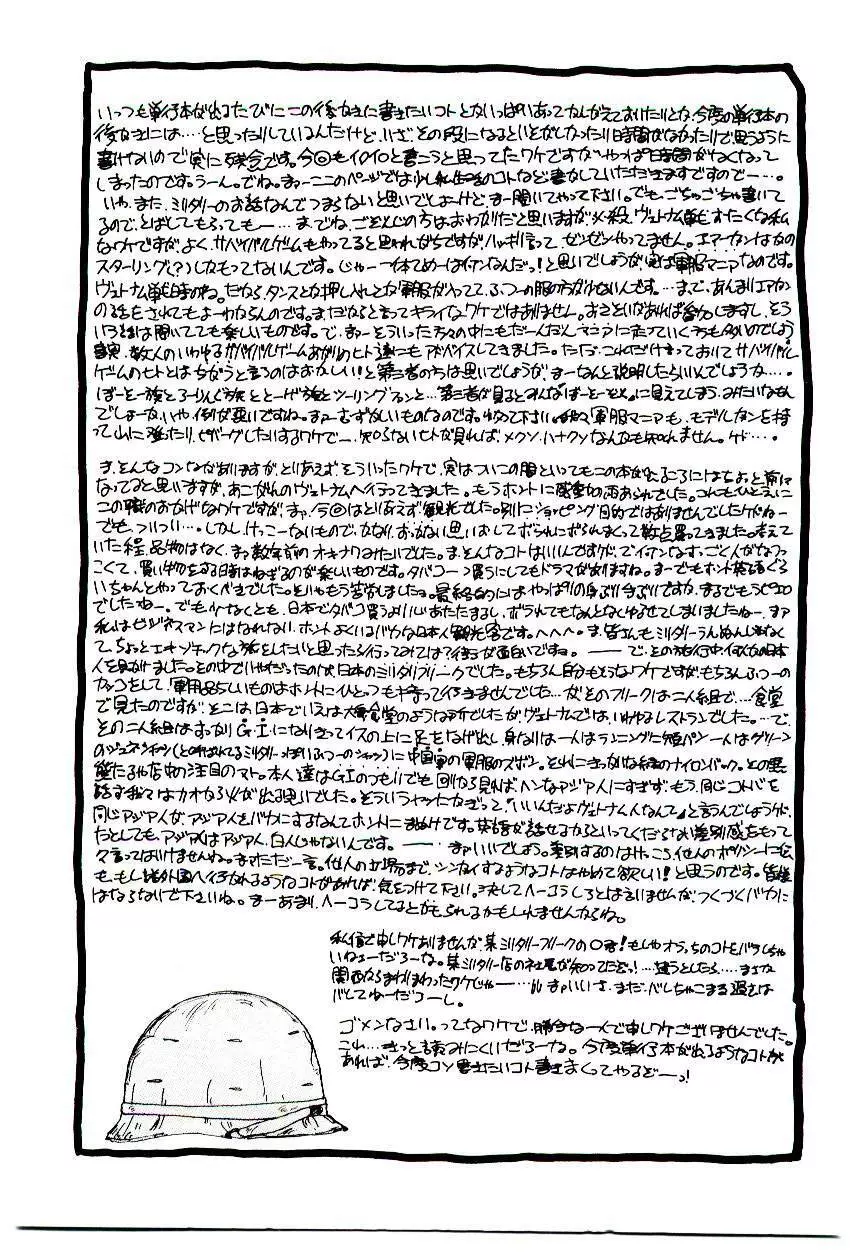 いっつも単行本が出るたびにこの後がきに書きたいコトとかいっぱいあって 今度の単行本の
後がきには…と思ったりしているんだけど、いざその段になるといそがしかったり時間がなかったりで思うように
書けないので実に残念です。今回もイロイロと書こうと思ってたワケですがやっぱ時間がなくなって
しまったのです。うーん。でね。まァーここのページでは少し私生活のコトなど書かしていただきますですのでー…。
いや、また、ミリタリーのお話なんでつまらないと思いでしょーけど、まー聞いてやって下さい。でもごちゃごちゃ書いて
るので、とばしてもらってもー…。までね、ごぞんじの方はおわかりだと思いますが、必殺、ヴェトナム戦争オタクな私
なワケですが、よく、サバイバルゲームもやってると思われがちですが、ハッキリ言って、ゼンゼンやってません。エアーガンは
スターリング(?)しかもってないんです。じゃー一体てめーはナンなんだっ!と思いでしょうが、実は軍服マニアなのです。
ヴェトナム戦争時のね。だから、タンスとか押し入れとか軍服が入ってて、ふつーの服の方が少ないんです。…まで、あんまりエアガン
の話をされてもよーわからんのです。まだだからと言ってキライなワケではありません。おさそいがあれば参加しますし、そう
いう話は聞いてても楽しいものです。で、まァーそういった方々の中にもだーんだんマニアに走っていく方も多いのでしょう
事実、数人のいわゆるサバイバルゲームあがりのヒト達にもアドバイスしてきました。ただ、これだけ言っておいてサバイバル
ゲームのヒトとはちがうと言うのはおかしい!と第三者の方は思いでしょうが、まーなんと説明したらいいんでしょうか…。
ぼーそー族とろーりんぐ族ととーげ族とツーリングマンと…第三者が見るとみんなぼーそーぞくに見えてしまう、みたいなもん
でしょーか、いや、例が悪いですね。まァーむずかしいものなのです。わかって下さい。軍服マニアも、モデルガンを持
って山に登ったり、ビバーグしたりするワケで、知らないヒトが見れば、メクソ、ハナクソなんかも知れません。ケド…。
ま、そんなコンながありますが、とりあえず、そういったワケで、実はついこの間といってもこの本が出るころにはちょっと前に
なってると思いますが、あこがれのヴェトナムへ行ってきました。もうホントに感動の雨あられでした。これもひとえに
この職のおかげなワケですが、まァ、今回はとりあえず、観光でした。別にショッピング目的ではありませんでしたけどねー
でも、ついつい…。しかし、けっこーないもので、かなり、おっかない思いおしてボられにボられまくって数点買ってきました。考えて
いた程、品物はなく、まァ数年前のオキナワみたいでした。ま、そんなコトはいいんですけど、でイキナリすっごく人がなつ
っこくて、買い物をする時はねぎるのが楽しいものです。タバコ一つ買うにしてもドラマがありますね。まーでもホント英語ぐら
いちゃんとやっておくべきでした。そりゃもう苦労しました。最終的にはやっぱりの身ぶり手ぶりですか、まるでもうピエロ
でしたねー。でも少なくとも、日本でタバコ買うよりいいしあたたまるし、ボラれてもなんとなくゆるせてしまいましたねー。まァ
私はビジネスマンにはなれない、ホントよくいるバカな日本人観光客です。へへへ。ま、皆さんもミリタリーうんぬんじゃなく
て、ちょっとエキゾチックな旅をしたいと思ったら行ってみては?行ってが面白いですね。—— で、その旅行中何人かの日本
人を見かけました。その中でいやだったのが、日本のミリタリフリークでした。もちろん自分もそうなワケですが、もちろんふつーの
カッコをして、軍用品らしいものはホントにひとつも持って行きませんでした…がそのフリークは二人組で…食堂
で見たのですが、そこは日本でいえば大衆食堂のような所でしたが、ヴェトナムでは、いわゆるレストランでした。…で、
その二人組はすっかり G・I になりきってイスの上に足をなげ出し、身なりは一人はランニングに短パン、一人はグリーン
のジャングルシャツ(と呼ばれてるミリタリーっぽいふつーのシャツ)に中国軍の軍服のズボン。それにまっかな緑のナイロンバック。その異
態たるや店中の注目のマト。本人達はG.Iのつもりでも回りから見ればヘンなアジア人にすぎず、もう、同じコトバを
話す我々はカオから火が出る思いでした。そういうヤツにかぎって「いいんだよヴェトナム人なんて」と言うんでしょうけど、
同じアジア人が、アジア人をバカにするなんてホントにまぬけです。英語が話せるからといってくだらない差別感をもって
たとしても、アジア人はアジア人、白人じゃないんです。—— まァいいでしょう。差別するのはけっこう、他人のポリシーに私
ゃ言ってはいけませんね。まァただ一言。他人の立場まで、シンガイするようなコトはやめて欲しい!と思うのです。皆様
も、もし諸外国へ行かれるようなコトがあれば、気をつけて下さい。決してヘーコラしろとは言いませんが、つくづくバカに
はならないで下さいね。まーあまり、ヘーコラしてるとかもられるかもしれませんからね。
私信で申しワケありませんが、某ミリタリーフリークの〇君!もしやオラっちのコトをバラしちゃ
いねェーだろーな。某ミリタリー店の社長が知ってたぞっ!…違うとしたら……まさか
関西からまわりまわったワケじゃー…ルまァいいさ、まだ、バレちゃこまる過去は
バレてねーだろーし。
ゴメンなさい。ってなワケで、勝手な一人で申しワケございませんでした。
これ…きっと読みにくいだろーな。今度単行本が出るようなコトが
あれば、今度コソ書きたいコト書きまくってやるぞーっ!